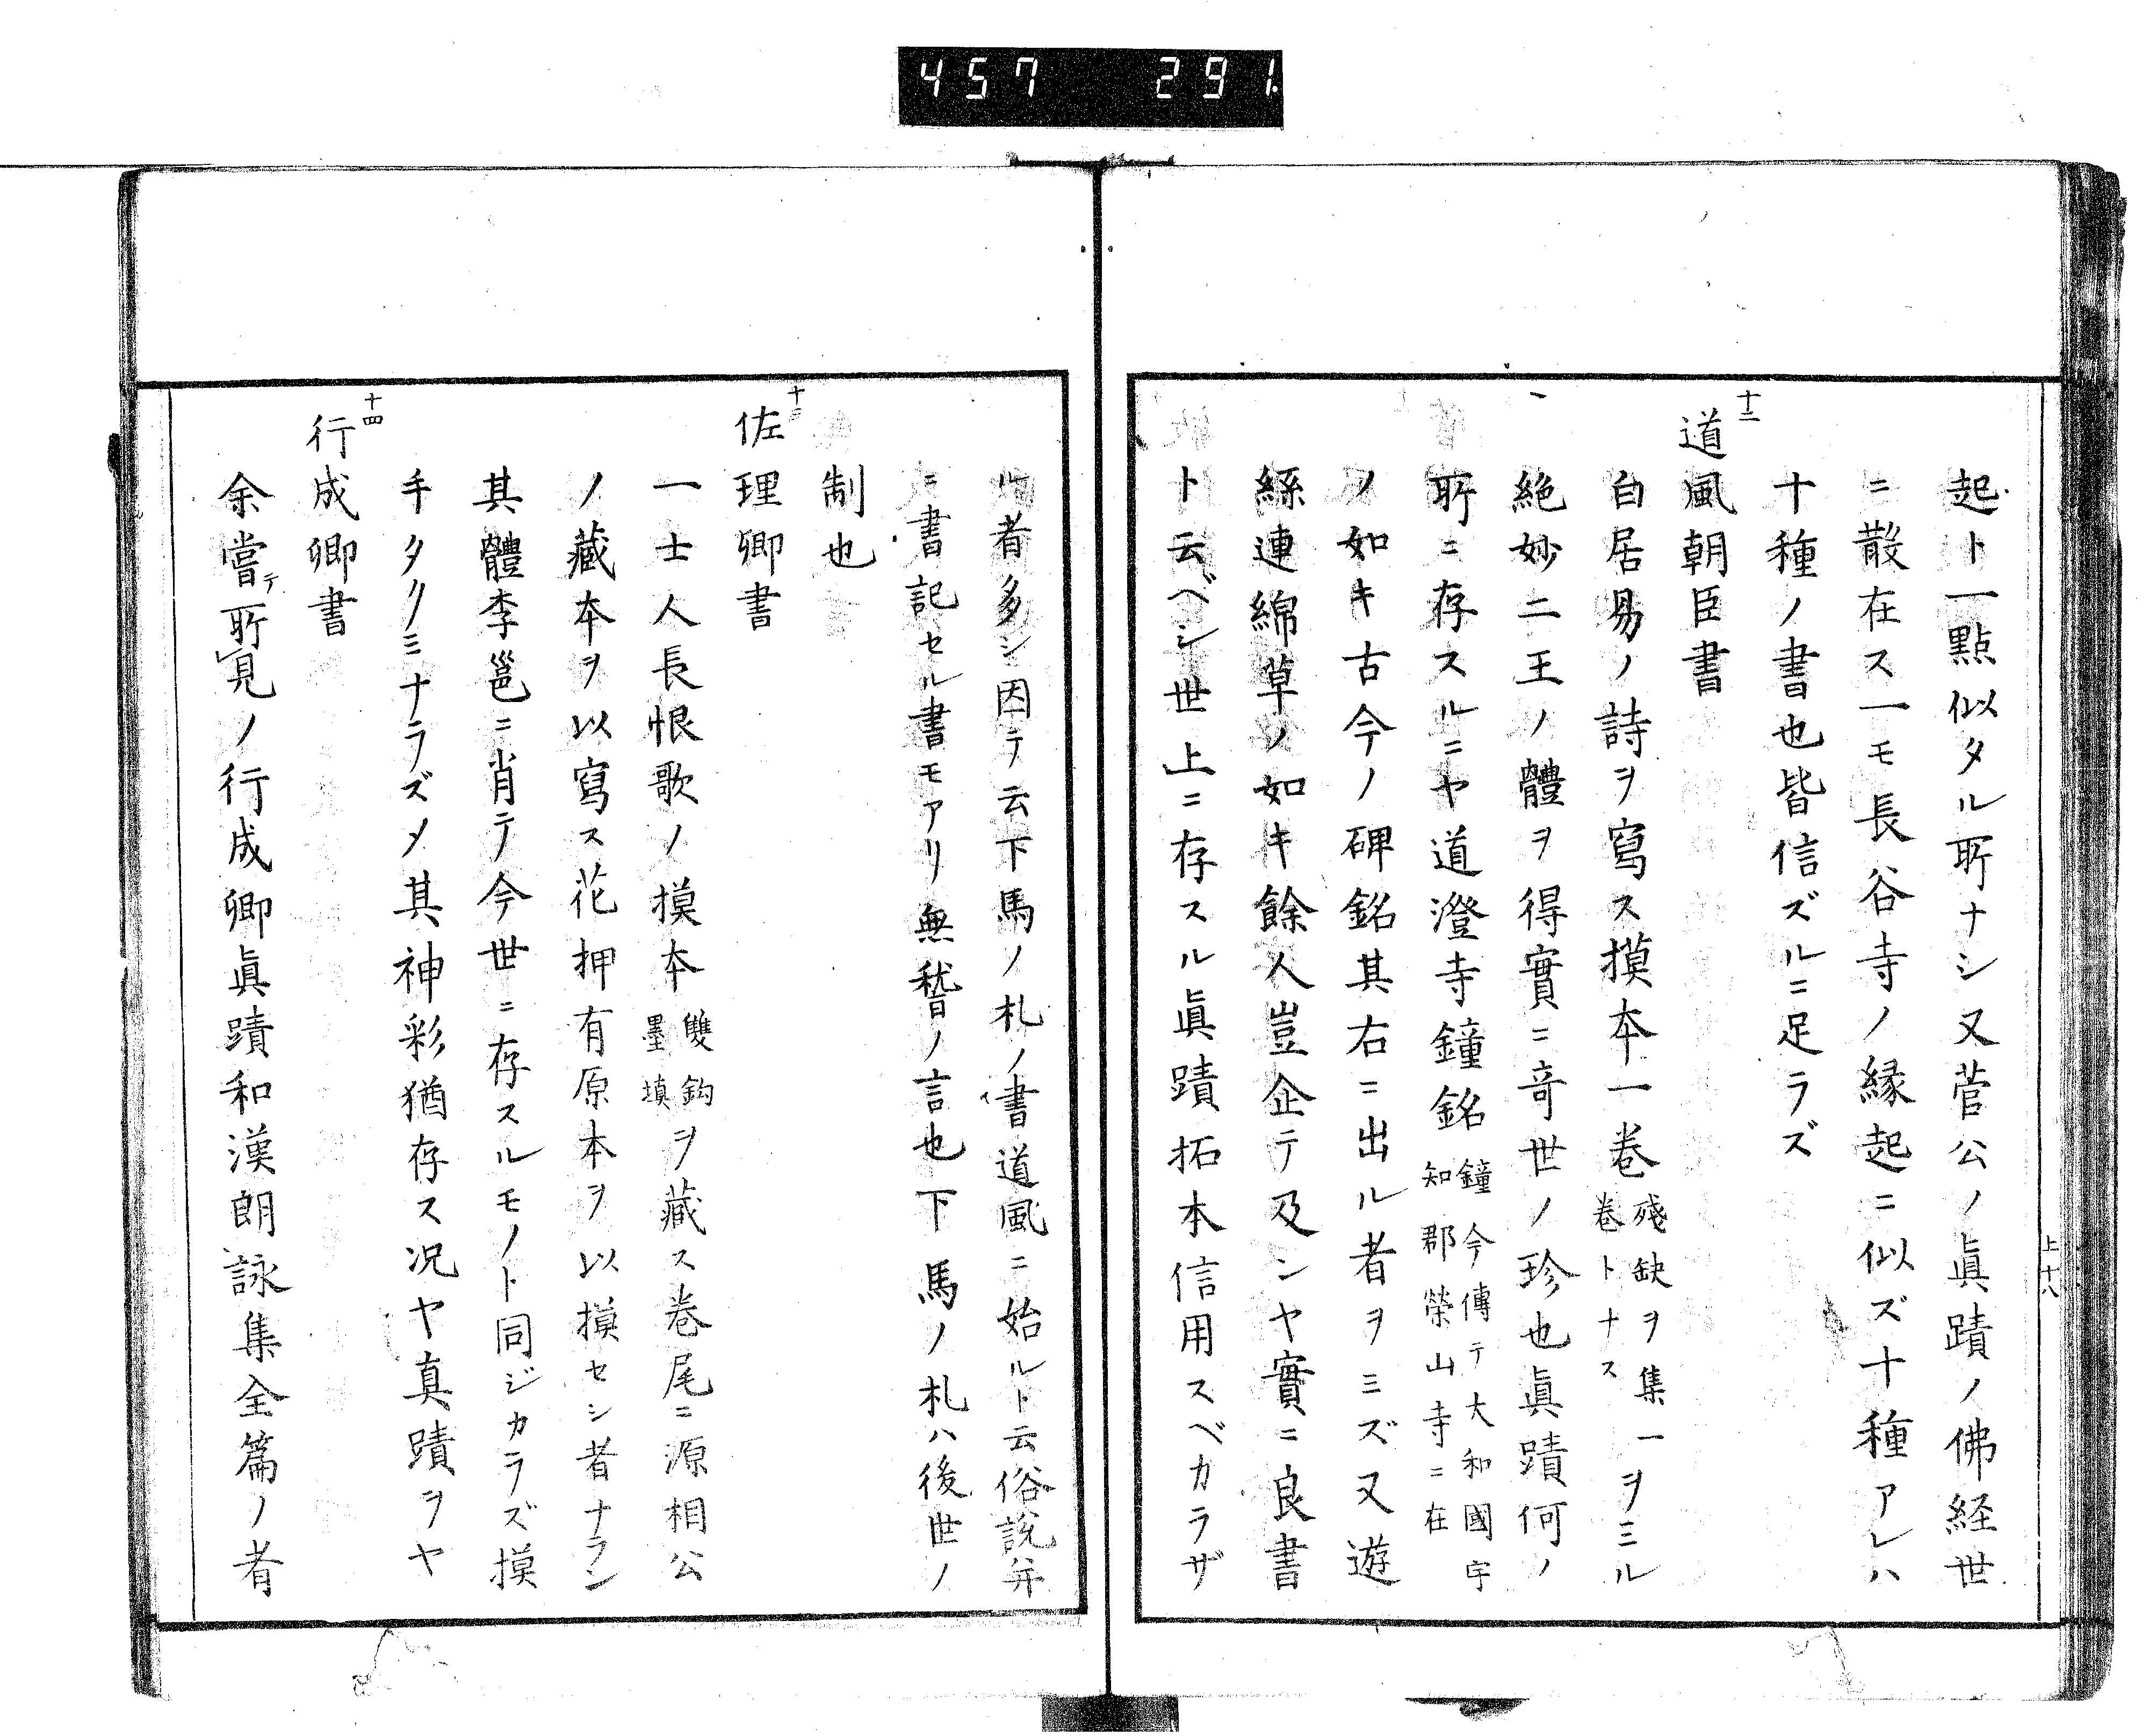 457 291.
上十八
起ト一點似タル所ナシ又菅公ノ眞蹟ノ佛経世
ニ散在ス一モ長谷寺ノ縁起ニ似ズ十種アレハ
十種ノ書也皆信ズルニ足ラズ
十二
道風朝臣書
白居易ノ詩ヲ寫ス摸本一卷殘缺ヲ集一
卷トナス
ヲミル
絶妙二王ノ體ヲ得實ニ奇世ノ珍也眞蹟何ノ
所ニ存スルニヤ道澄寺鐘銘鐘今傳テ大和國宇
知郡榮山寺ニ在
ノ如キ古今ノ碑銘其右ニ出ル者ヲミズ又遊
絲連綿草ノ如キ餘人豈企テ及ンヤ實ニ良書
ト云ベシ世上ニ存スル眞蹟拓本信用スベカラザ
ル者多シ因テ云下馬ノ札ノ書道風ニ始ルト云俗説并
ニ書記セル書モアリ無稽ノ言也下馬ノ札ハ後世ノ
制也
十三
佐理卿書
一士人長恨歌ノ摸本雙鈎
墨填
ヲ藏ス卷尾ニ源相公
ノ藏本ヲ以寫ス花押有原本ヲ以摸セシ者ナラン
其體李邕ニ肖テ今世ニ存スルモノト同ジカラズ摸
手タクミナラズメ其神彩猶存ス况ヤ真蹟ヲヤ
十四
行成卿書
余嘗テ所見ノ行成卿眞蹟和漢朗詠集全篇ノ者